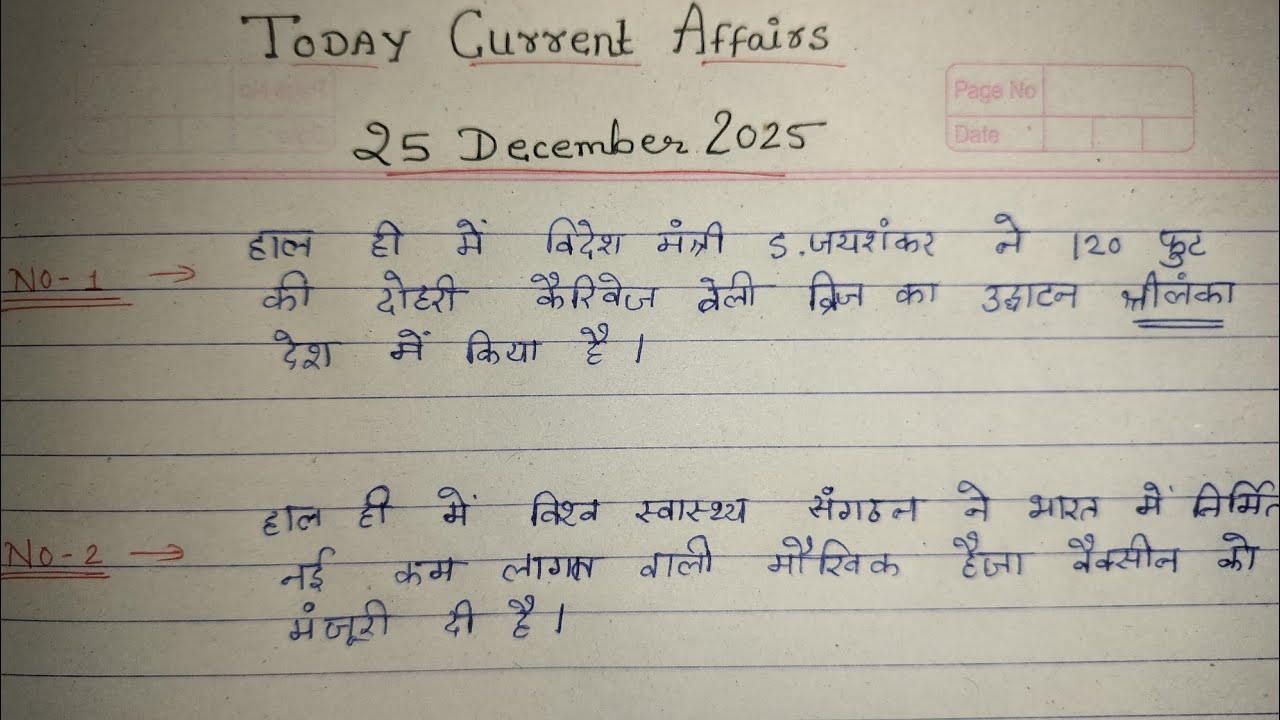 TODAY Current Affairs
Page No
25 December 2025
Date
हाल ही में विदेश मंत्री ड.जयशंकर ने 120 फुट
NO-1 → की दोहरी कैरिवेज बेली ब्रिज का उद्घाटन श्रीलंका
देश में किया है।
हाल ही में विश्व स्वास्थ्य संगठन ने भारत में निर्मित
NO-2 → नई कम लागत वाली मौखिक हैजा वैक्सीन को
मंजूरी दी है।